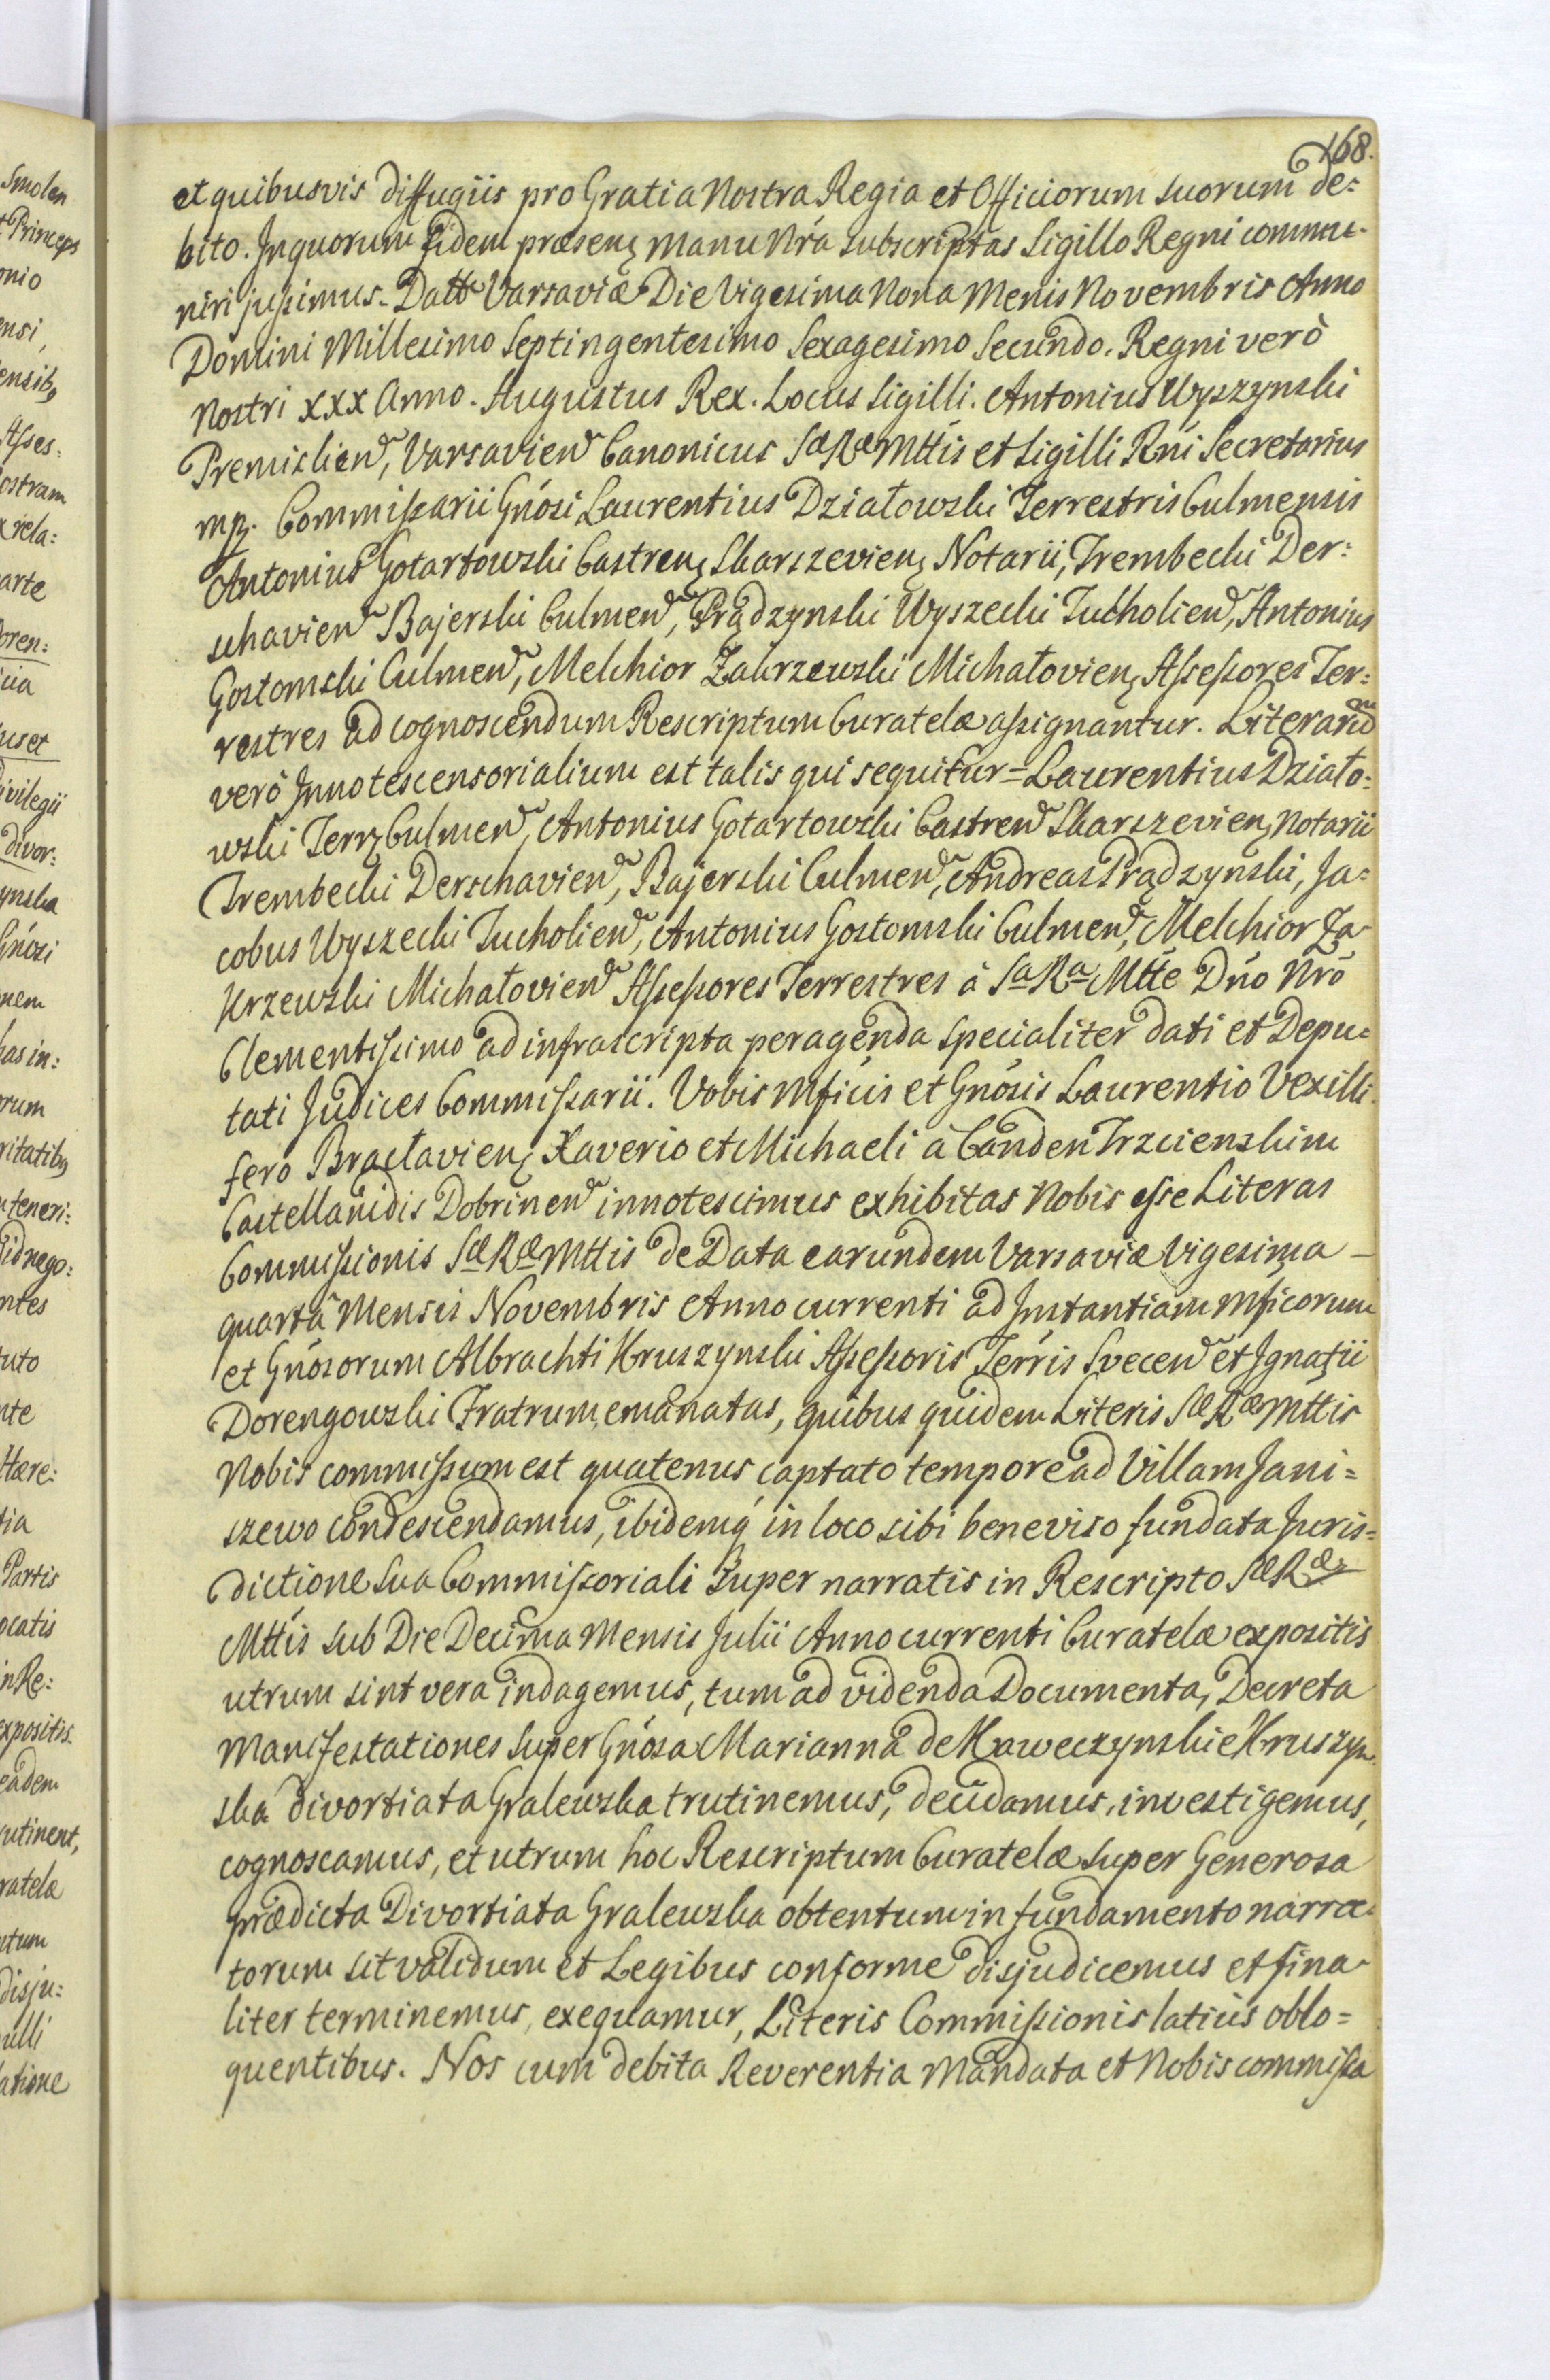 168.
et quibusvis diffugiis pro Gratia Nostra Regia et Officiorum suorum de:
bito. In quorum fidem præsenȩ manu Nra subscriptas Sigillo Regni commu-
niri jussimus. Datt Varsaviæ Die Vigesima Nona Menis Novembris Anno
Domini Millesimo Septingentesimo Sexagesimo Secundo. Regni verò
Nostri XXX Anno. Augustus Rex. Locus Sigilli. Antonius Wyszynski
Premislien, Varsavien Canonicus Sæ Ræ Mttis et Sigilli Rni Secretarius
mp. Commissarii Gnosi Laurentius Działowski Terrestris Culmensis
Antonius Gotartowski Castrenȩ Skarszevienȩ Notarii, Trembecki Der:
schavien Bajerski Culmen, Prądzynski Wyszecki Tucholien, Antonius
Gostomski Culmen, Melchior Zakrzewski Michałovienȩ Assessores Ter:
restres ad cognoscendum Rescriptum Curatelæ assignantur. Literarum
verò Innotescensorialium est talis qui sequitur = Laurentius Działo:
wski Terrȩ Culmen, Antonius Gotartowski Castren Skarszevienȩ Notarii
Trembecki Derschavien, Bajerski Culmen, Andreas Prądzynski, Ja:
cobus Wyszecki Tucholien, Antonius Gostomski Culmen, Melchior Za-
krzewski Michałovien Assessores Terrestres à Sa Ra Mtte Dno Nro
Clementissimo ad infrascripta peragenda specialiter dati et Depu:
tati Judices Commissarii. Vobis Mficis et Gnosis Laurentio Vexilli
fero Bracłavienȩ Xaverio et Michaeli à Canden Trzcienskim
Castellanidis Dobrinen innotescimus exhibitas Nobis esse Literas
Commissionis Sæ Ræ Mttis de Data earundem Varsaviæ Vigesima –
quarta Mensis Novembris Anno currenti ad Instantiam Mficorum
et Gnosorum Albrachti Kruszynski Assessoris Terris Svecen et Ignatii
Dorengowski Fratrum, emanatas, quibus quidem Literis Sæ Ræ Mttis
Nobis commissum est quatenus captato tempore ad Villam Jani=
szewo condescendamus, ibidemq in loco sibi beneviso fundata Juris=
dictione sua Commissoriali super narratis in Rescripto Sæ Ræ
Mttis sub Die Decima Mensis Julii Anno currenti Curatelæ expositis
utrum sint vera indagemus, tum ad videnda Documenta, Decreta
Manifestationes super Gnosa Marianna de Kaweczynskie Kruszyn
ska divortiata Gralewska trutinemus, decidamus, investigemus,
cognoscamus, et utrum hoc Rescriptum Curatelæ super Generosa
prædicta Divortiata Gralewska obtentum in fundamento narra-
torum sit validum et Legibus conforme disjudicemus et fina-
liter terminemus, exequamur, Literis Commissionis latius oblo=
quentibus. Nos cum debita Reverentia Mandata et Nobis commissa